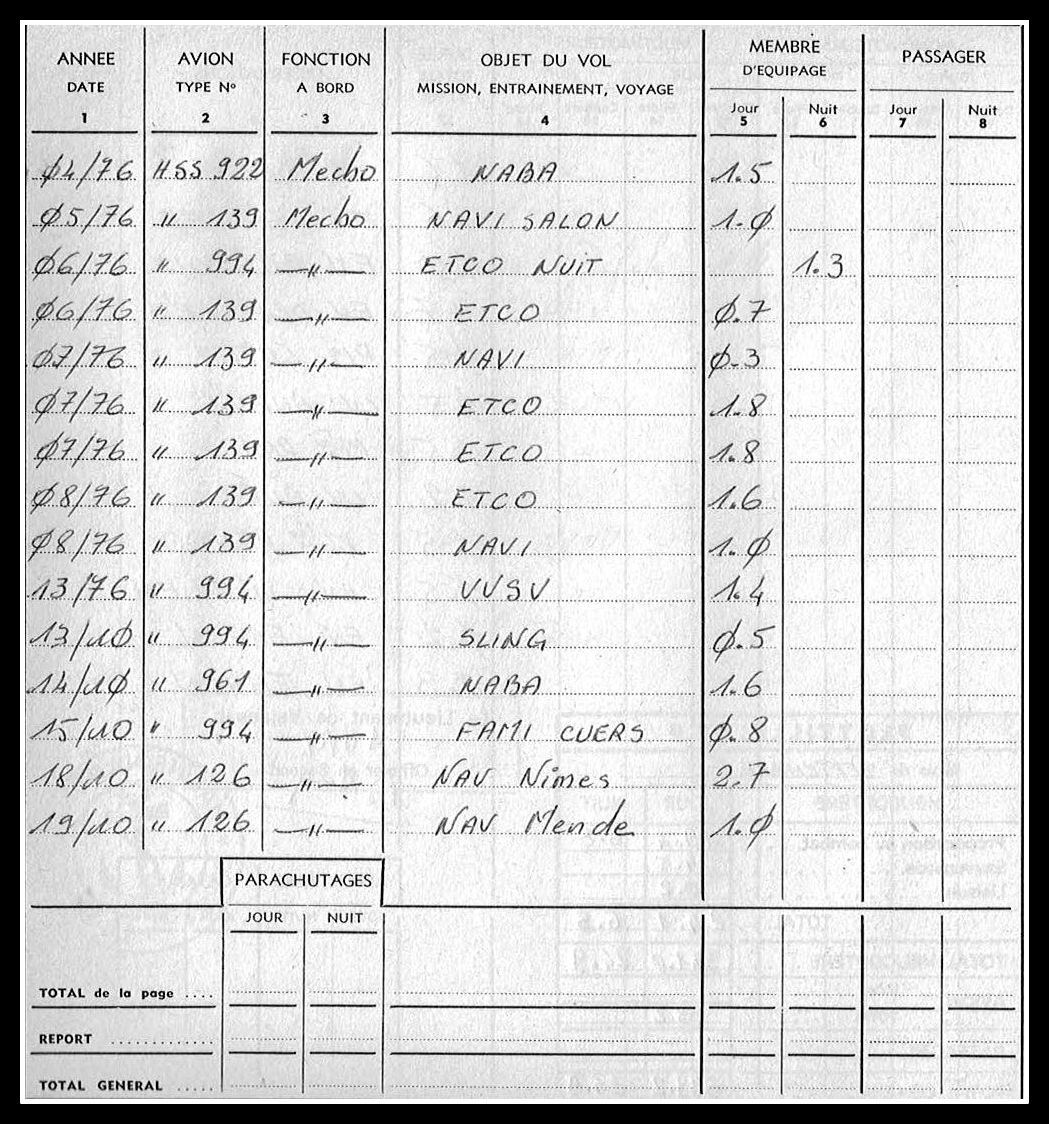 ANNEE AVION FONCTION OBJET DU VOL MEMBRE D'EQUIPAGE PASSAGER
DATE TYPE No A BORD MISSION, ENTRAINEMENT, VOYAGE Jour Nuit Jour Nuit
1 2 3 4 5 6 7 8
Ø4/76 HSS 922 Mecbo NABA 1.5
Ø5/76 " 139 Mecbo NAVI SALON 1.Ø
Ø6/76 " 994 —"— ETCO NUIT 1.3
Ø6/76 " 139 —"— ETCO Ø.7
Ø7/76 " 139 —"— NAVI Ø.3
Ø7/76 " 139 —"— ETCO 1.8
Ø7/76 " 139 —"— ETCO 1.8
Ø8/76 " 139 —"— ETCO 1.6
Ø8/76 " 139 —"— NAVI 1.Ø
13/76 " 994 —"— VVSV 1.4
13/1Ø " 994 —"— SLING Ø.5
14/1Ø " 961 —"— NABA 1.6
15/10 " 994 —"— FAMI CUERS Ø.8
18/10 " 126 —"— NAV Nimes 2.7
19/10 " 126 —"— NAV Mende 1.Ø
PARACHUTAGES
JOUR NUIT
TOTAL de la page ....
REPORT ............
TOTAL GENERAL .....